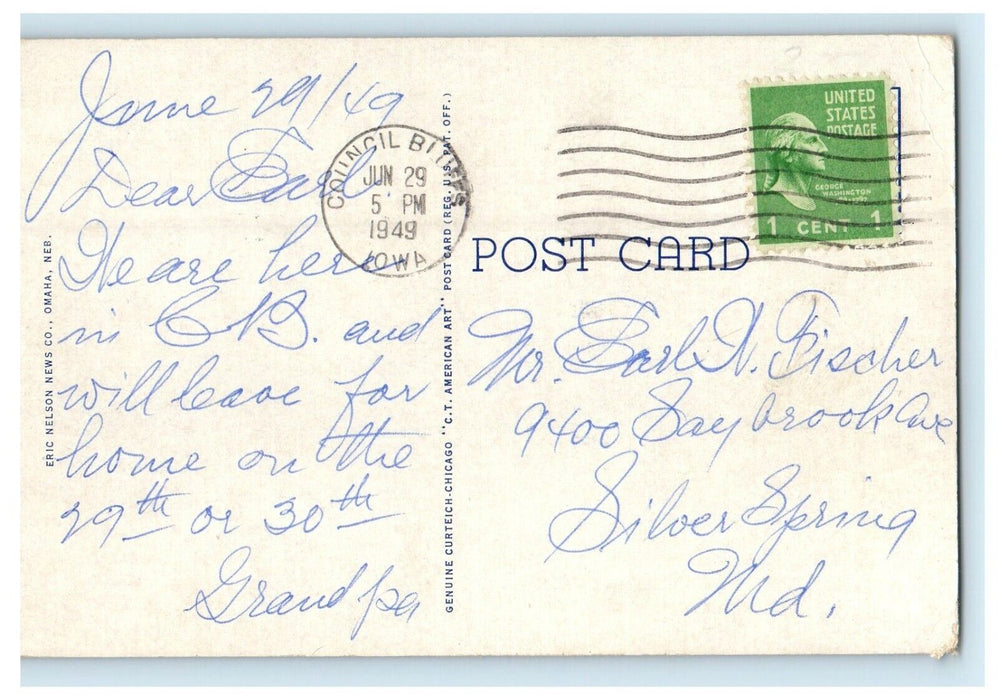 June 29/49
Dear Earl
We are here
in C B. and
will leave for
home on the
29th or 30th
Grandpa
ERIC NELSON NEWS CO., OMAHA, NEB.
GENUINE CURTEICH-CHICAGO "C.T. AMERICAN ART" POST CARD (REG. U.S. PAT. OFF.)
COUNCIL BLUFFS
JUN 29
5 PM
1949
IOWA
UNITED
STATES
POSTAGE
GEORGE
WASHINGTON
1 CENT 1
POST CARD
Mr. Earl N. Fischer
9400 Saybrook Ave
Silver Spring
Md.